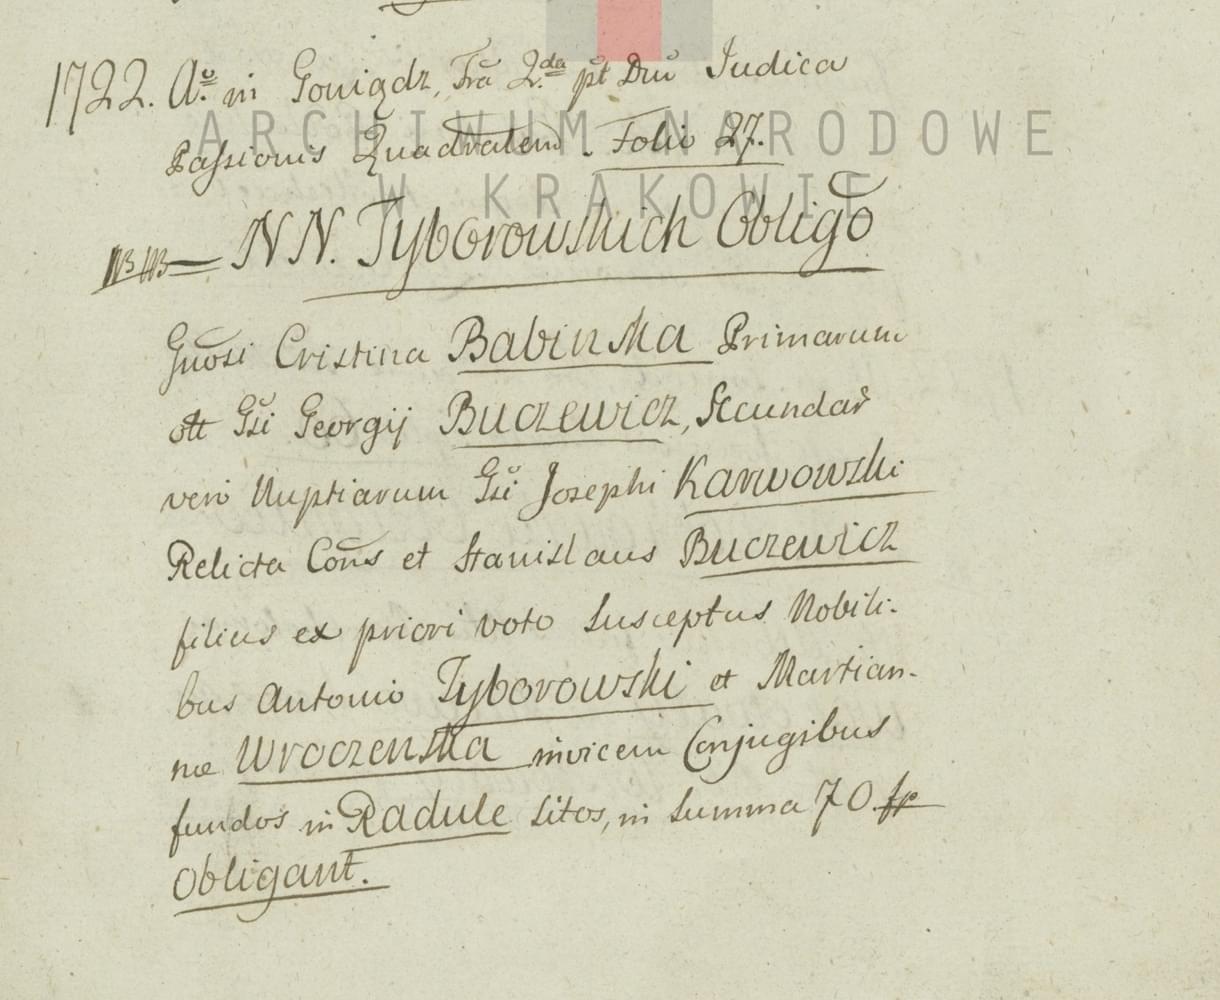 1722. Aº. in Goniądz, Fra 2.da pt Dnu Judica
Passionis Quadralem. Folio 27.
ARCHIWUM NARODOWE
W KRAKOWIE
NB NB NN. Tyborowskich Obligo
Gnosi Cristina Babinska Primarum
ott Gsi Georgij Buczewicz, Secundar
vero Nuptiarum Gsi Josephi Karwowski
Relicta Cons et Stanislaus Buczewicz
filius ex priori voto Susceptus Nobili-
bus Antonio Tyborowski et Martian-
næ Wroczenska invicem Conjugibus
fundos in Radule Sitos, in Summa 70 fp
Obligant.